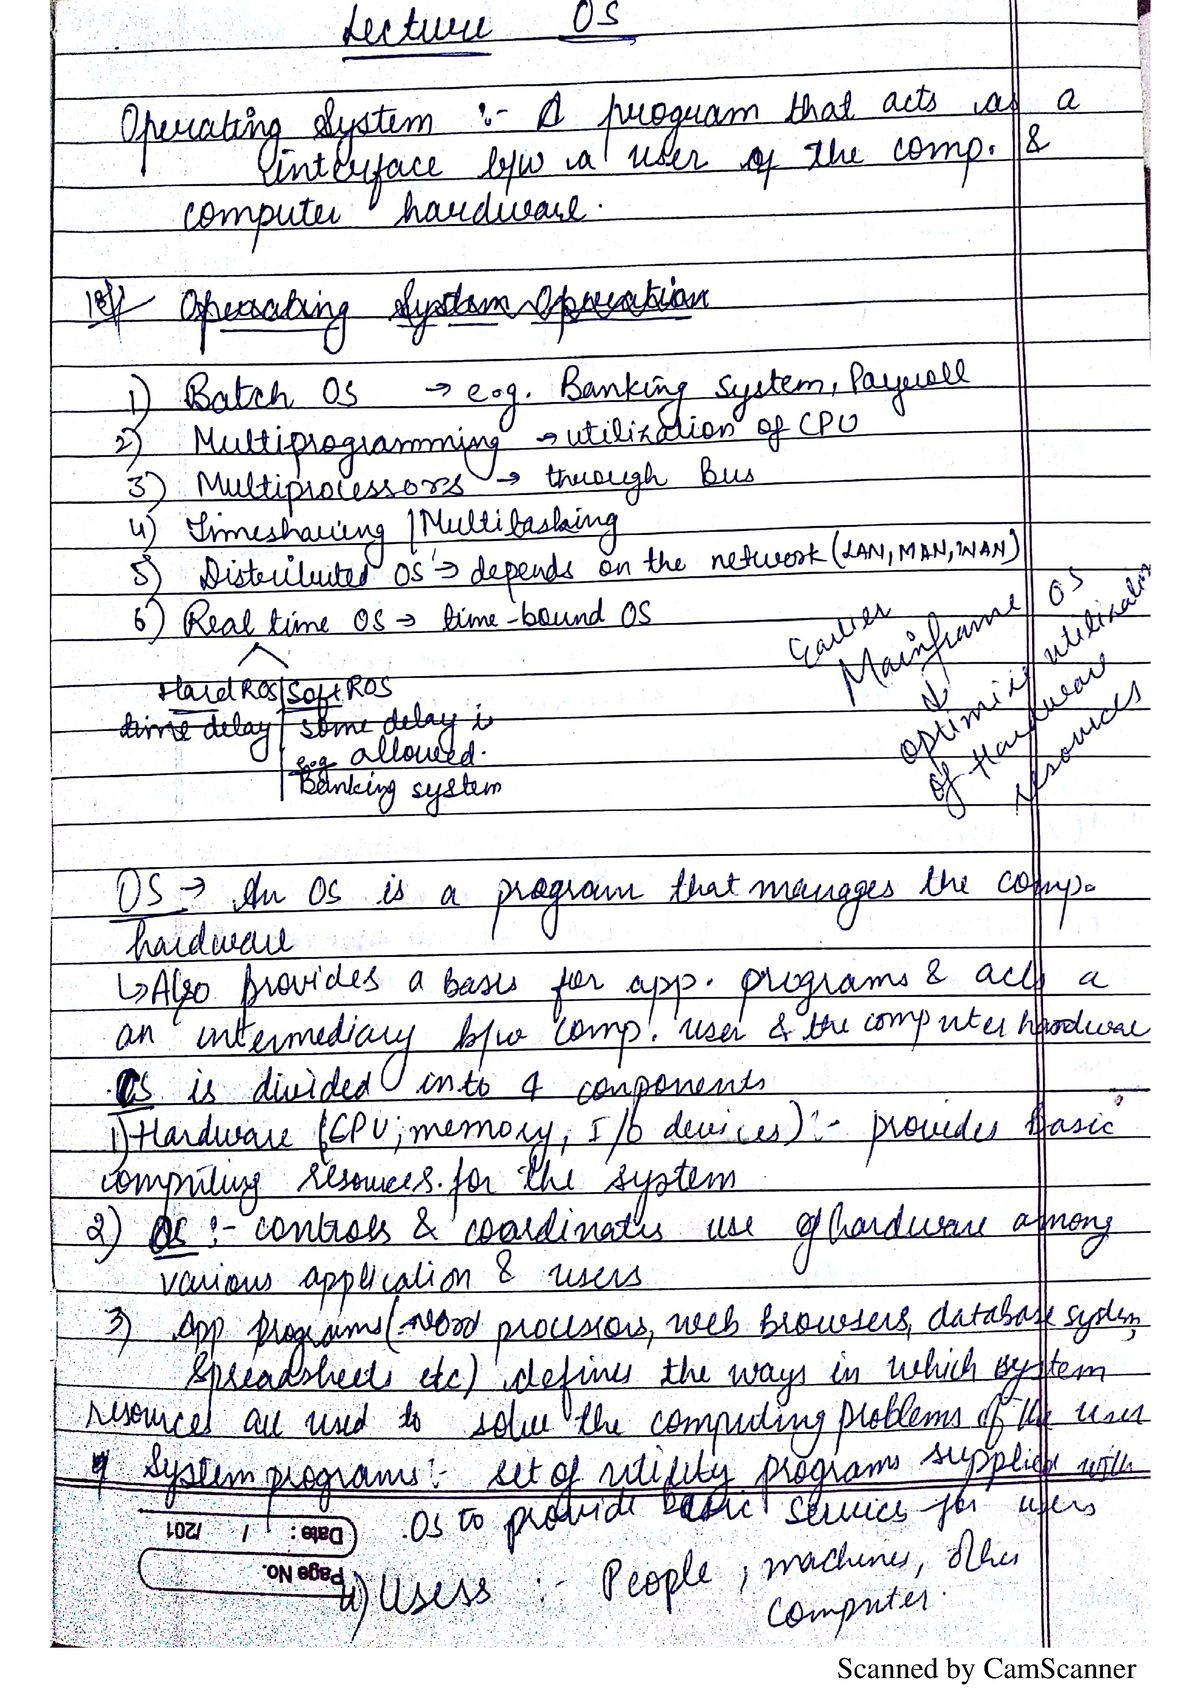 Lecture OS
Operating System :- A program that acts as a
interface b/w a user of the comp. &
computer hardware.
Operating System Operation
1) Batch OS → e.g. Banking system, Payroll
2) Multiprogramming → utilization of CPU
3) Multiprocessors → through Bus
4) Timesharing | Multitasking
5) Distributed OS → depends on the network (LAN, MAN, WAN)
6) Real time OS → time-bound OS
Earlier
Mainframe OS
↓
optimize utilization
of Hardware
resources
Hard ROS | Soft ROS
time delay | some delay is
allowed.
e.g.
Banking system
OS → An OS is a program that manages the comp.
hardware
↳ Also provides a basis for app. programs & acts a
an intermediary b/w comp. user & the computer hardware
OS is divided into 4 conponents
1) Hardware (CPU, memory, I/O devices) :- provides basic
computing resources for the system
2) OS :- controls & coordinates use of hardware among
various application & users
3) App programs (word processors, web browsers, database system,
Spreadsheets etc) defines the ways in which system
resources are used to solve the computing problems of the user
4 System programs :- set of utility programs supplied with
OS to provide basic services for users
Date: / /201
Page No.
4) Users :- People, machines, other
computer.
Scanned by CamScanner